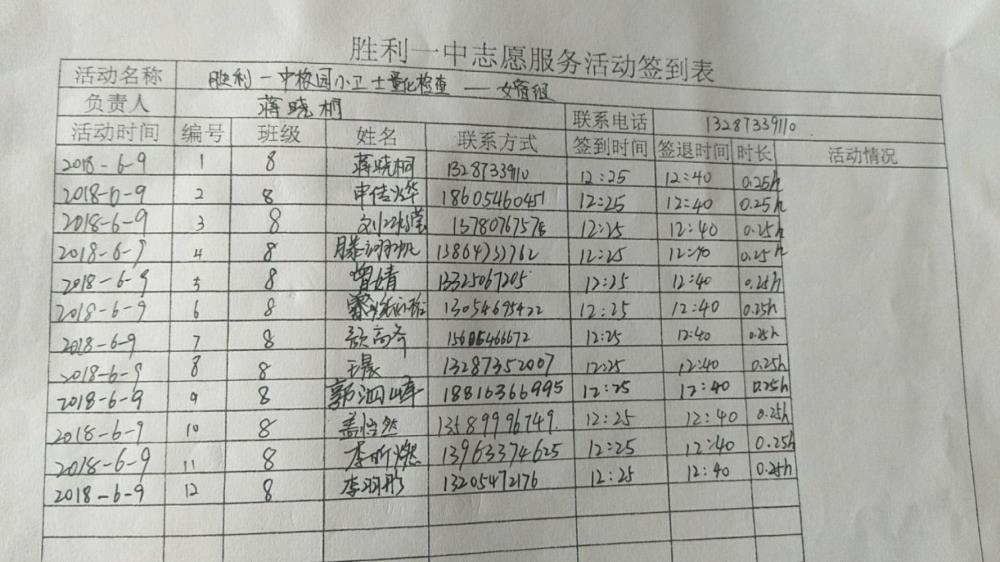 胜利一中志愿服务活动签到表
活动名称 胜利一中校园小卫士量化检查——女宿组
负责人 蒋晓桐 联系电话 13287339110
活动时间 编号 班级 姓名 联系方式 签到时间 签退时间 时长 活动情况
2018-6-9 1 8 蒋晓桐 1328733910 12:25 12:40 0.25h
2018-6-9 2 8 申佳烨 18605460451 12:25 12:40 0.25h
2018-6-9 3 8 12:25 12:40 0.25h
2018-6-9 4 8 12:25 12:40 0.25h
2018-6-9 5 8 曾婧 13325067205 12:25 12:40 0.25h
2018-6-9 6 8 13054695422 12:25 12:40 0.25h
2018-6-9 7 8 12:25 12:40 0.25h
2018-6-9 8 8 王晨 13287352007 12:25 12:40 0.25h
2018-6-9 9 8 18816366995 12:25 12:40 0.25h
2018-6-9 10 8 盖怡然 13589996749 12:25 12:40 0.25h
2018-6-9 11 8 李昕燃 13963374625 12:25 12:40 0.25h
2018-6-9 12 8 李羽彤 13205472176 12:25 12:40 0.25h